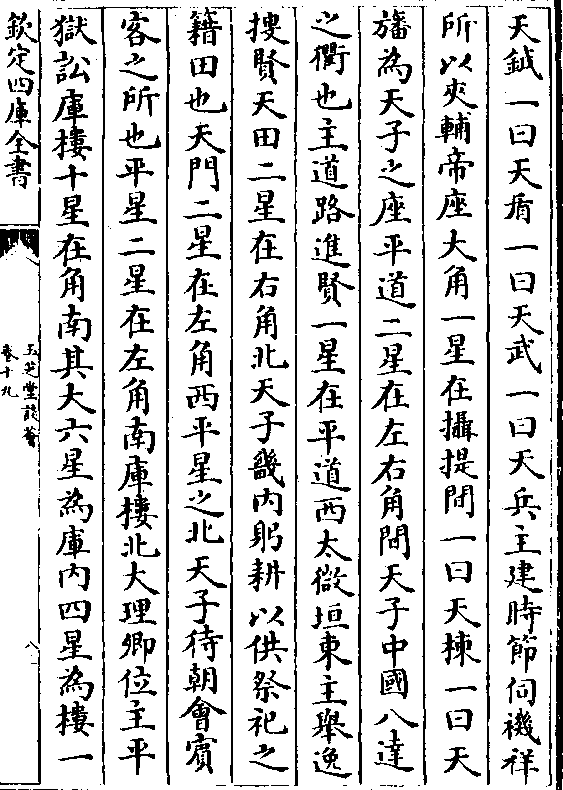 天鉞一曰天盾一曰天武一曰天兵主建時節伺禨祥
所以夾輔帝座大角一星在攝提間一曰天棟一曰天
旛為天子之座平道二星在左右角間天子中國八達
之衢也主道路進賢一星在平道西太微垣東主舉逸
搜賢天田二星在右角北天子畿内躬耕以供祭祀之
籍田也天門二星在左角西平星之北天子待朝會賓
客之所也平星二星在左角南庫樓北大理卿位主平
獄訟庫樓十星在角南其大六星為庫内四星為樓一
欽定四庫全書
玉芝堂談薈
卷十九
八